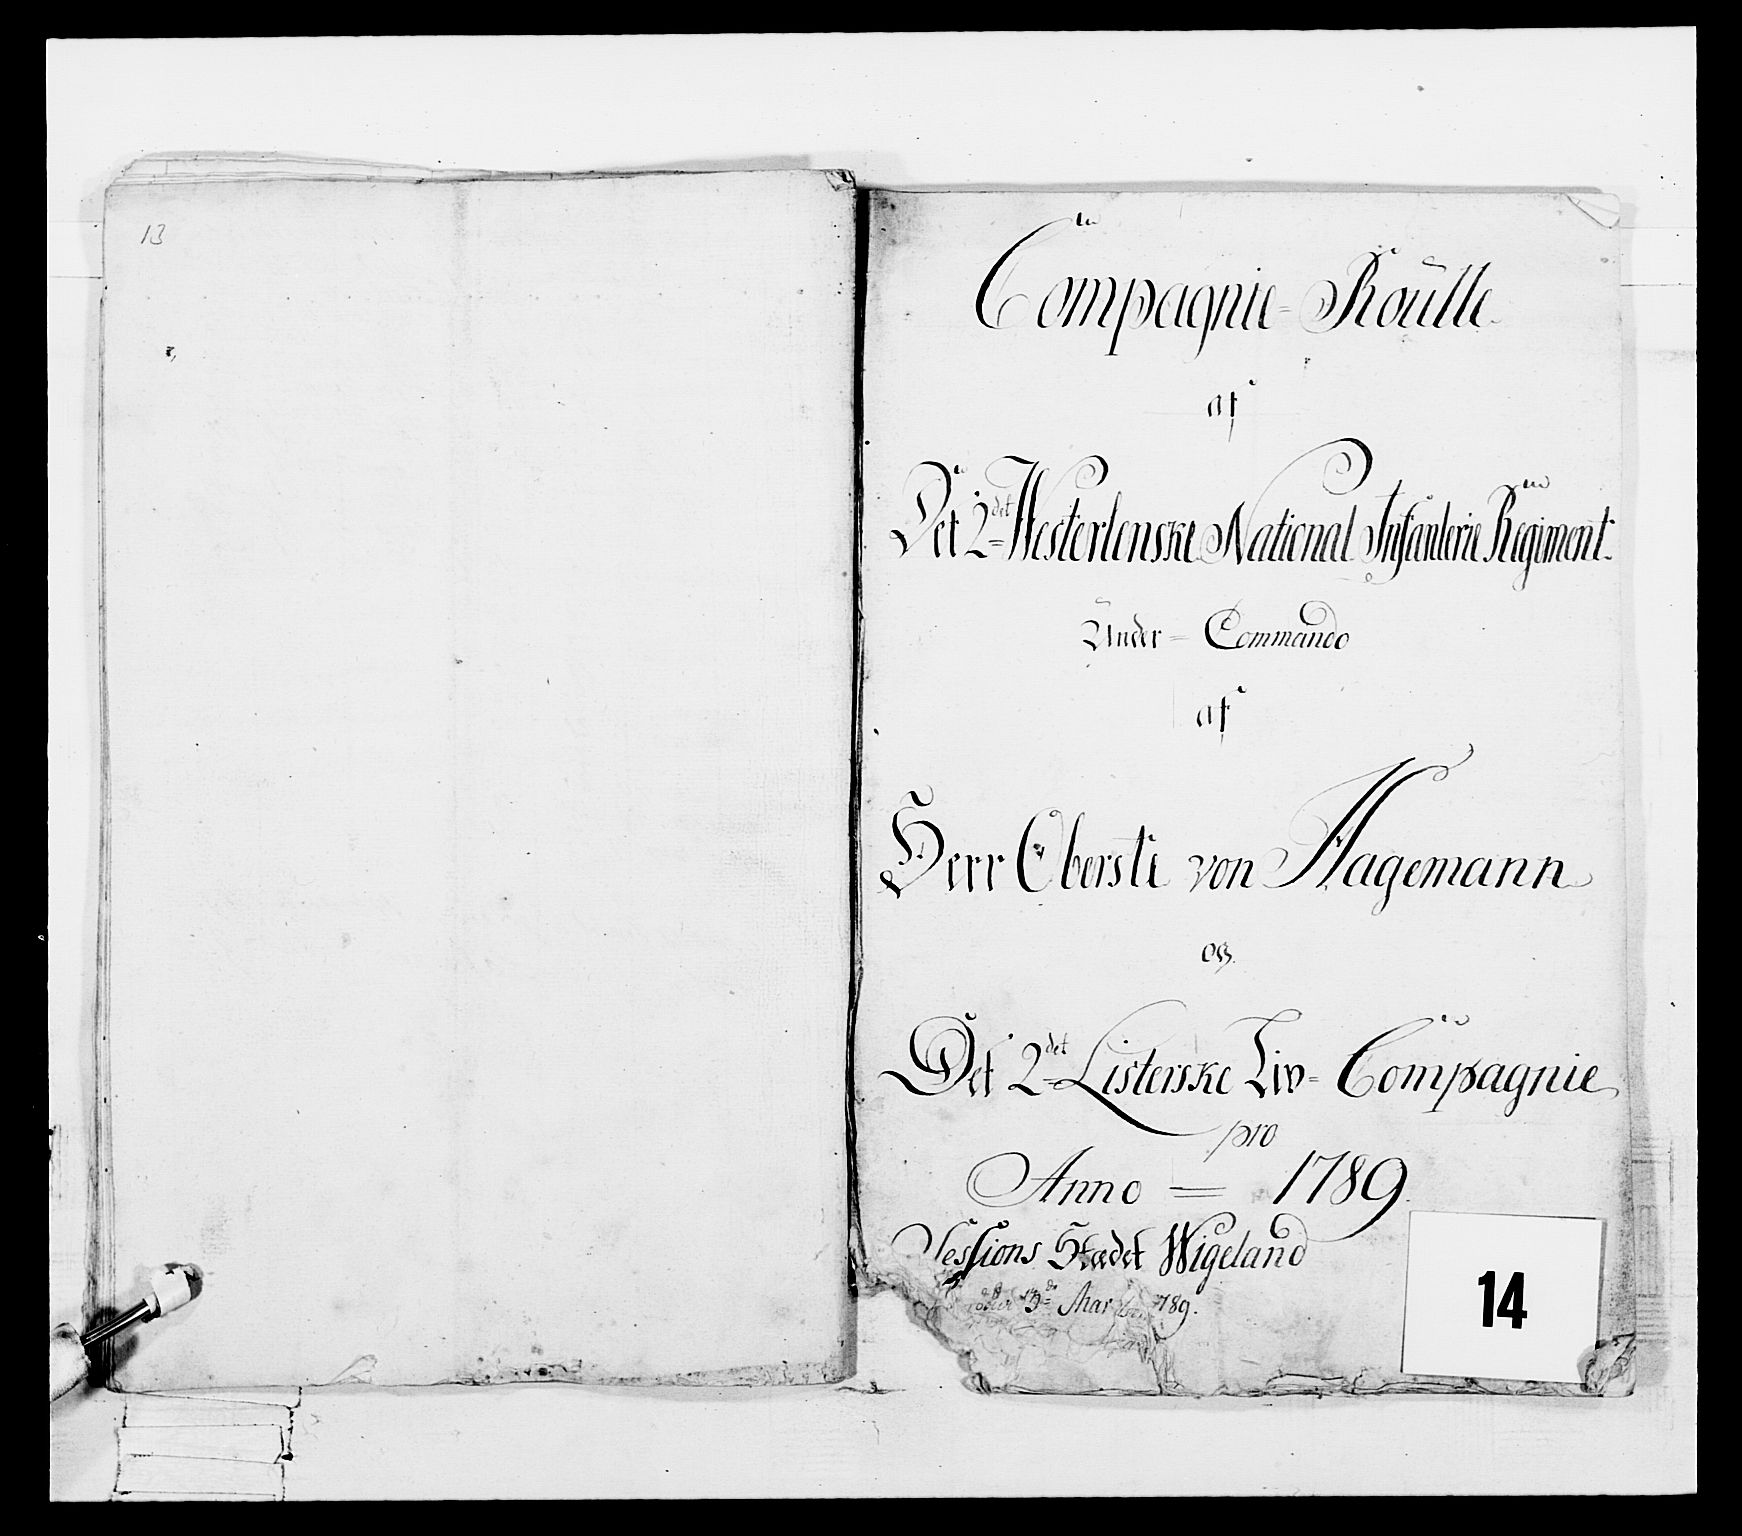 13
Compagnie-Roülle
af
Det 2det Westerlenske National Infanterie Regiment
Ünder-Commando
af
Herr Oberste von Hagemann
og
Det 2det Listerske Liv-Compagnie
pro
Anno = 1789
Sessions Stædet Wigeland
1789.
14